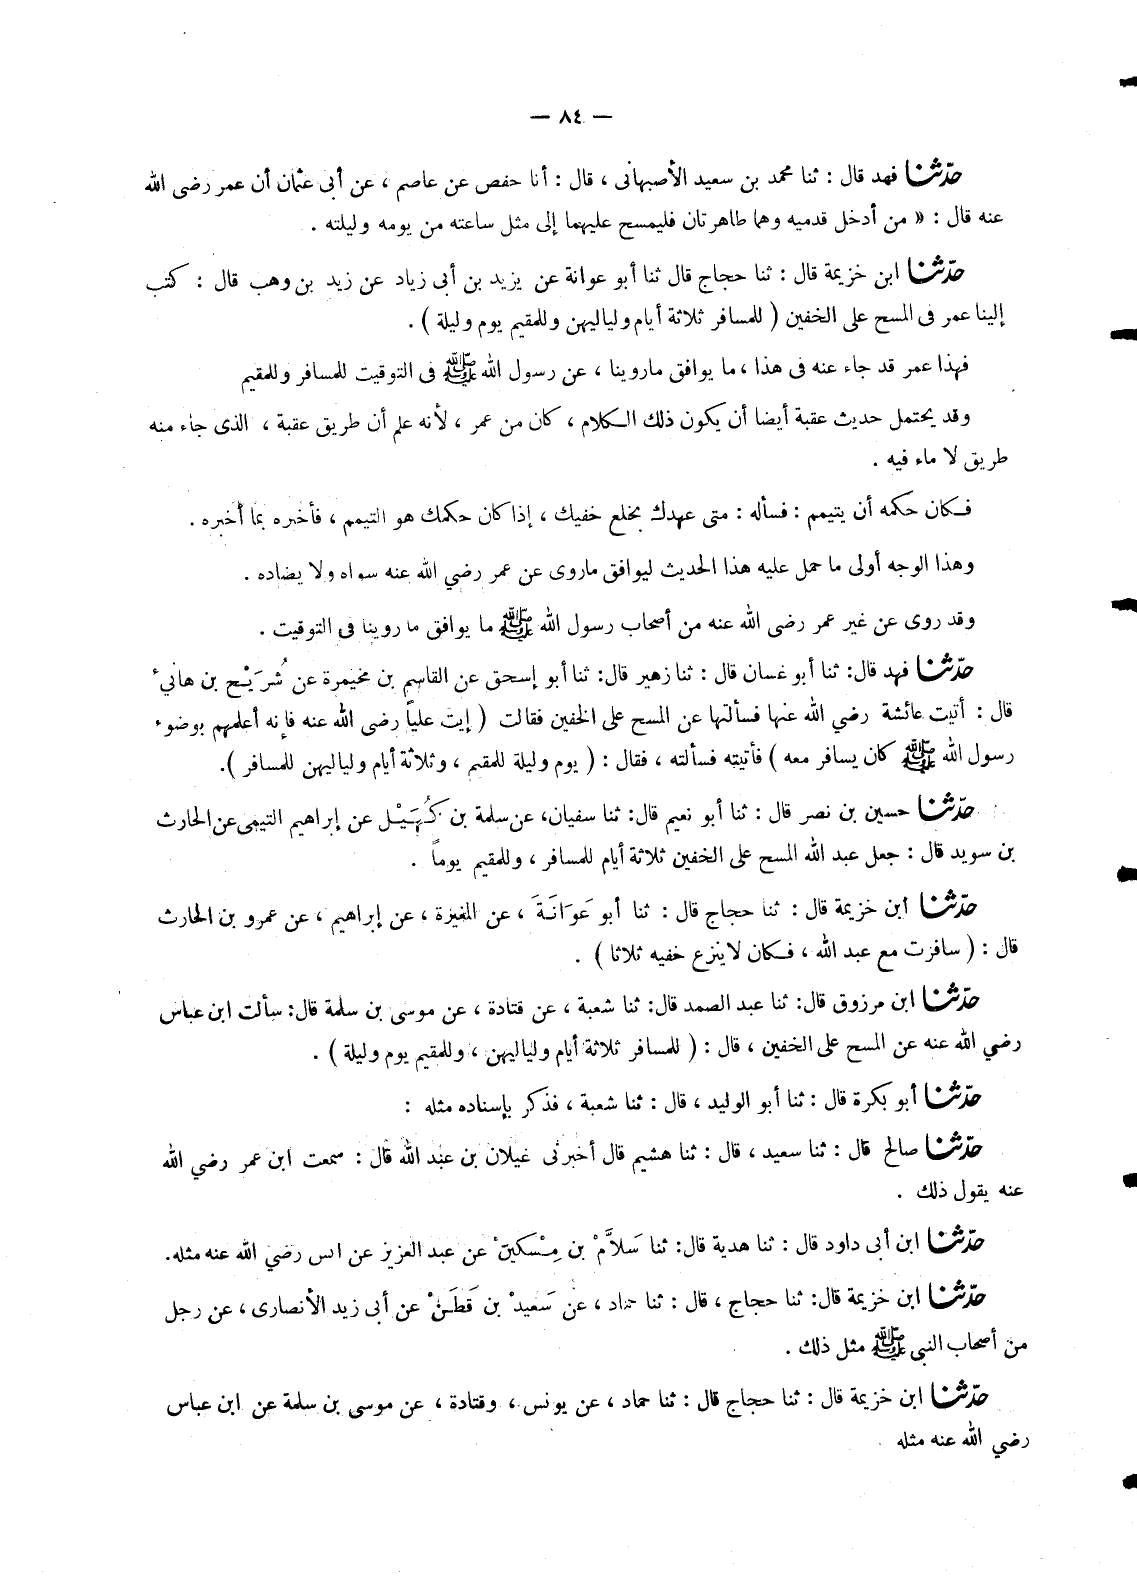 — ٨٤ —
حدّثنا فهد قال : ثنا محمد بن سعيد الأصبهانى ، قال : أنا حفص عن عاصم ، عن أبى عثمان أن عمر رضى الله
عنه قال : « من أدخل قدميه وهما طاهرتان فليمسح عليهما إلى مثل ساعته من يومه وليلته .
حدّثنا ابن خزيمة قال : ثنا حجاج قال ثنا أبو عوانة عن يزيد بن أبى زياد عن زيد بن وهب قال : كتب
إلينا عمر فى المسح على الخفين ( للمسافر ثلاثة أيام ولياليهن وللمقيم يوم وليلة ) .
فهذا عمر قد جاء عنه فى هذا ، ما يوافق ماروينا ، عن رسول الله ﷺ فى التوقيت للمسافر وللمقيم
وقد يحتمل حديث عقبة أيضا أن يكون ذلك الكلام ، كان من عمر ، لأنه علم أن طريق عقبة ، الذى جاء منه
طريق لا ماء فيه .
فكان حكمه أن يتيمم : فسأله : متى عهدك بخلع خفيك ، إذا كان حكمك هو التيمم ، فأخبره بما أخبره .
وهذا الوجه أولى ما حمل عليه هذا الحديث ليوافق ماروى عن عمر رضي الله عنه سواه ولا يضاده .
وقد روى عن غير عمر رضى الله عنه من أصحاب رسول الله ﷺ ما يوافق ما روينا فى التوقيت .
حدّثنا فهد قال: ثنا أبو غسان قال : ثنا زهير قال: ثنا أبو إسحق عن القاسم بن مخيمرة عن شُرَيْح بن هانىء
قال : أتيت عائشة رضي الله عنها فسألتها عن المسح على الخفين فقالت ( إيت علياً رضى الله عنه فإنه أعلمهم بوضوء
رسول الله ﷺ كان يسافر معه ) فأتيته فسألته ، فقال : ( يوم وليلة للمقيم ، وثلاثة أيام ولياليهن للمسافر ).
حدّثنا حسين بن نصر قال : ثنا أبو نعيم قال: ثنا سفيان، عن سلمة بن كُهَيْل عن إبراهيم التيمى عن الحارث
بن سويد قال : جعل عبد الله المسح على الخفين ثلاثة أيام للمسافر ، وللمقيم يوماً .
حدّثنا ابن خزيمة قال : ثنا حجاج قال : ثنا أبو عَوَانَةَ ، عن المغيرة ، عن إبراهيم ، عن عمرو بن الحارث
قال : ( سافرت مع عبد الله ، فكان لاينزع خفيه ثلاثا ) .
حدّثنا ابن مرزوق قال: ثنا عبد الصمد قال: ثنا شعبة ، عن قتادة ، عن موسى بن سلمة قال: سألت ابن عباس
رضي الله عنه عن المسح على الخفين ، قال : ( للمسافر ثلاثة أيام ولياليهن ، وللمقيم يوم وليلة ) .
حدّثنا أبو بكرة قال : ثنا أبو الوليد ، قال : ثنا شعبة ، فذكر بإسناده مثله :
حدّثنا صالح قال : ثنا سعيد ، قال : ثنا هشيم قال أخبرنى غيلان بن عبد الله قال : سمعت ابن عمر رضي الله
عنه يقول ذلك .
حدّثنا ابن أبى داود قال : ثنا هدية قال: ثنا سَلاَّمْ بن مِسْكين عن عبد العزيز عن انس رضي الله عنه مثله.
حدّثنا ابن خزيمة قال: ثنا حجاج ، قال : ثنا حماد ، عن سَعيدْ بن قَطَنْ عن أبى زيد الأنصارى ، عن رجل
من أصحاب النبى ﷺ مثل ذلك .
حدّثنا ابن خزيمة قال : ثنا حجاج قال : ثنا حماد ، عن يونس ، وقتادة ، عن موسى بن سلمة عن ابن عباس
رضي الله عنه مثله